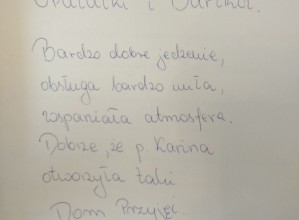 i
Bardzo dobre jedzenie,
obsługa bardzo miła,
wspaniała atmosfera.
Dobrze, że p. Karina
otworzyła taki
Dom Przyjęć.